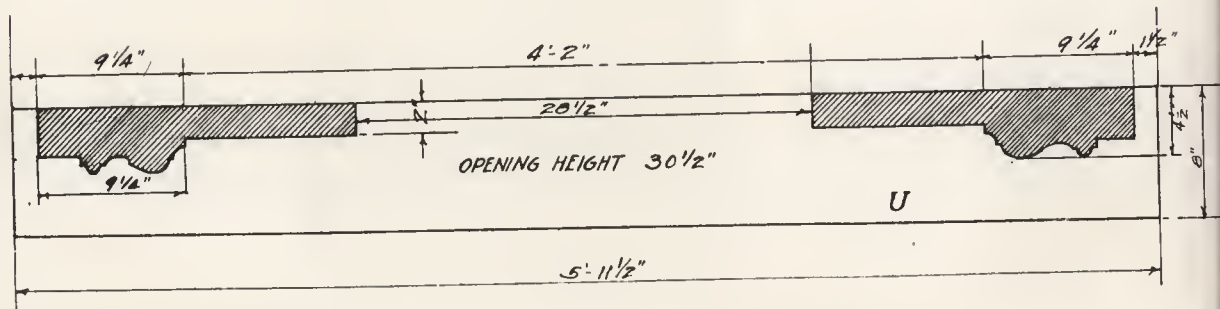 9 1/4" 4'-2" 9 1/4" 1 1/2"
2" 28 1/2" 4 1/2" 8"
OPENING HEIGHT 30 1/2"
9 1/4"
U
5'-11 1/2"